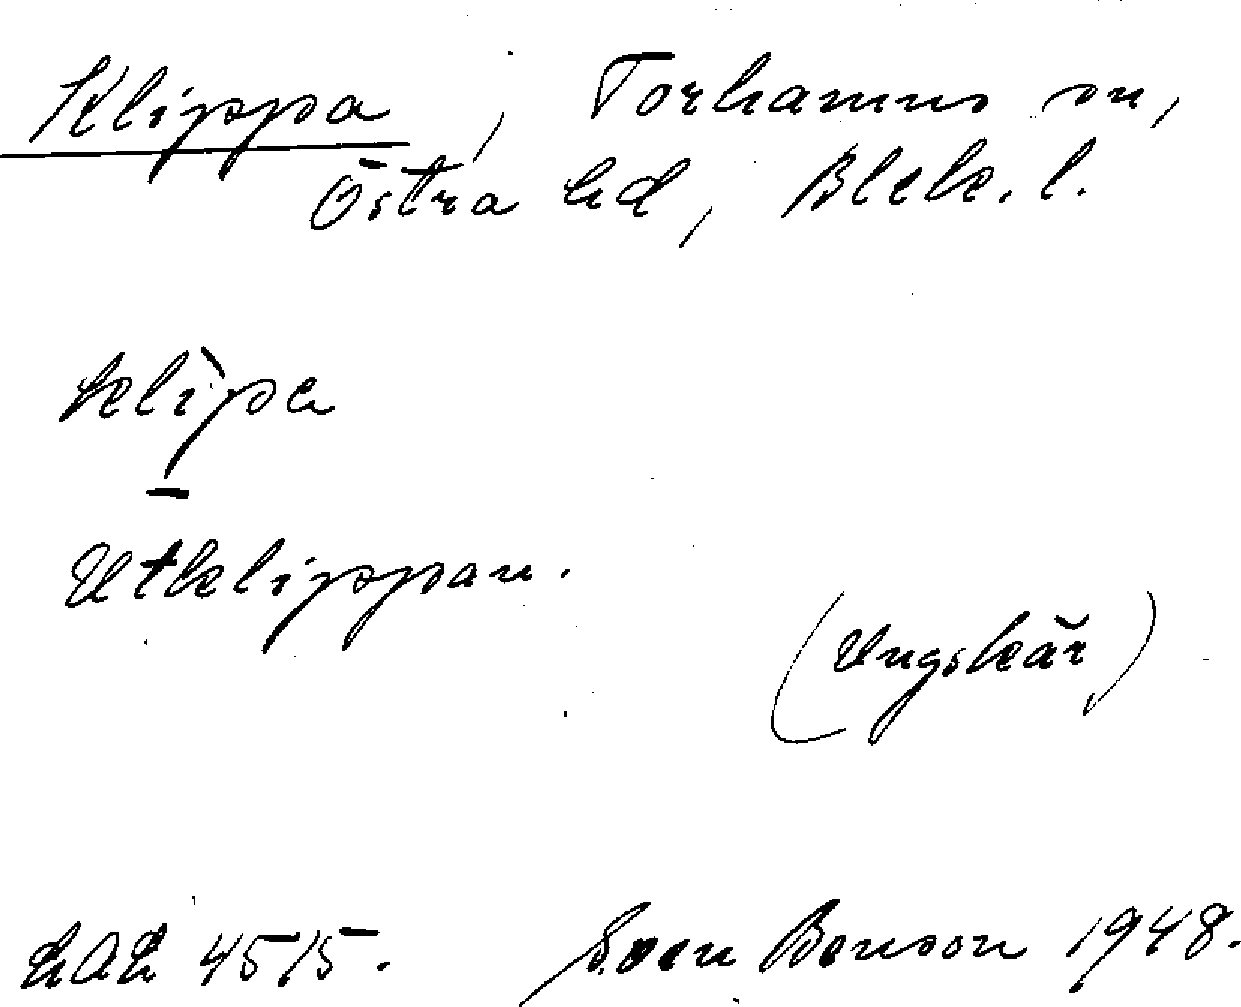 Klippa, Torhamns sn,
Östra hd, Blek. l.
klìpa
Utklippan.
(Ungskär)
LAL 4515. Sven Benson 1948.